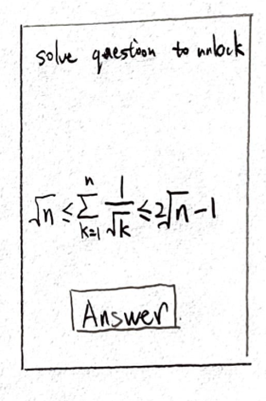 solve question to unlock
√n ≤ ∑_{k=1}^{n} 1/√k ≤ 2√n − 1
Answer